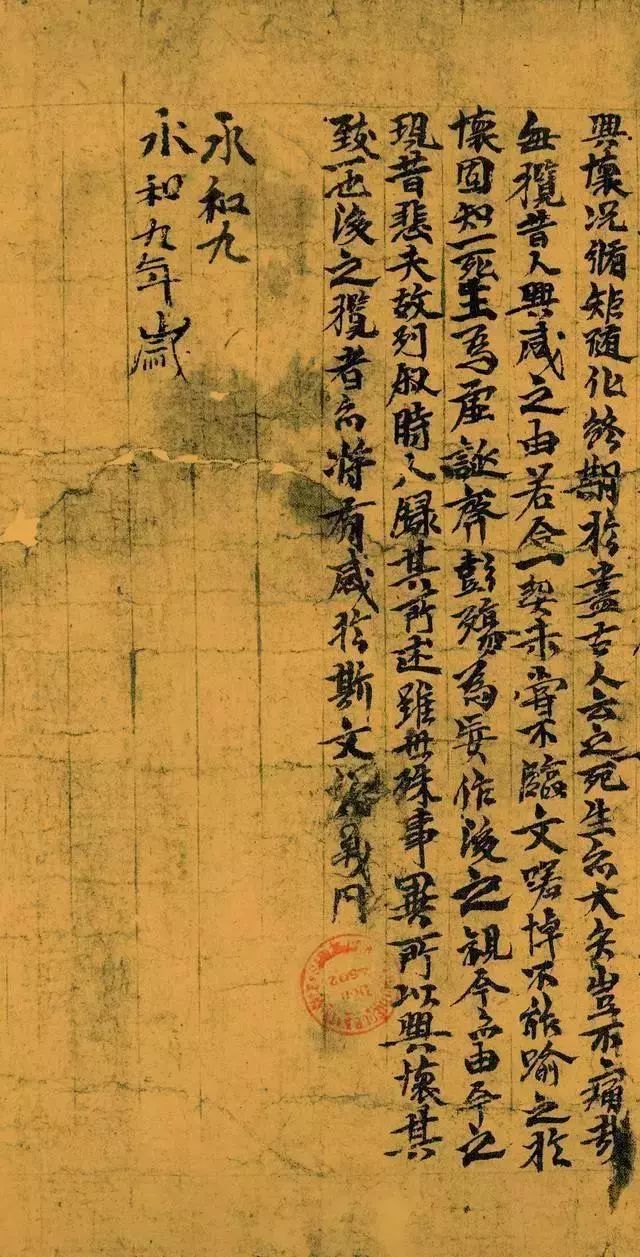 興懷况脩矩随化終期於盡古人云之死生亦大矣豈不痛哉
每攬昔人興感之由若合一契未甞不臨文嗟悼不能喻之於
懷固知一死生為虚誕齊彭殤為妄作後之視今亦由今之
現昔悲夫故列叙時人錄其所述雖世殊事異所以興懷其
致一也後之攬者亦将有感於斯文
永和九
永和九年歲